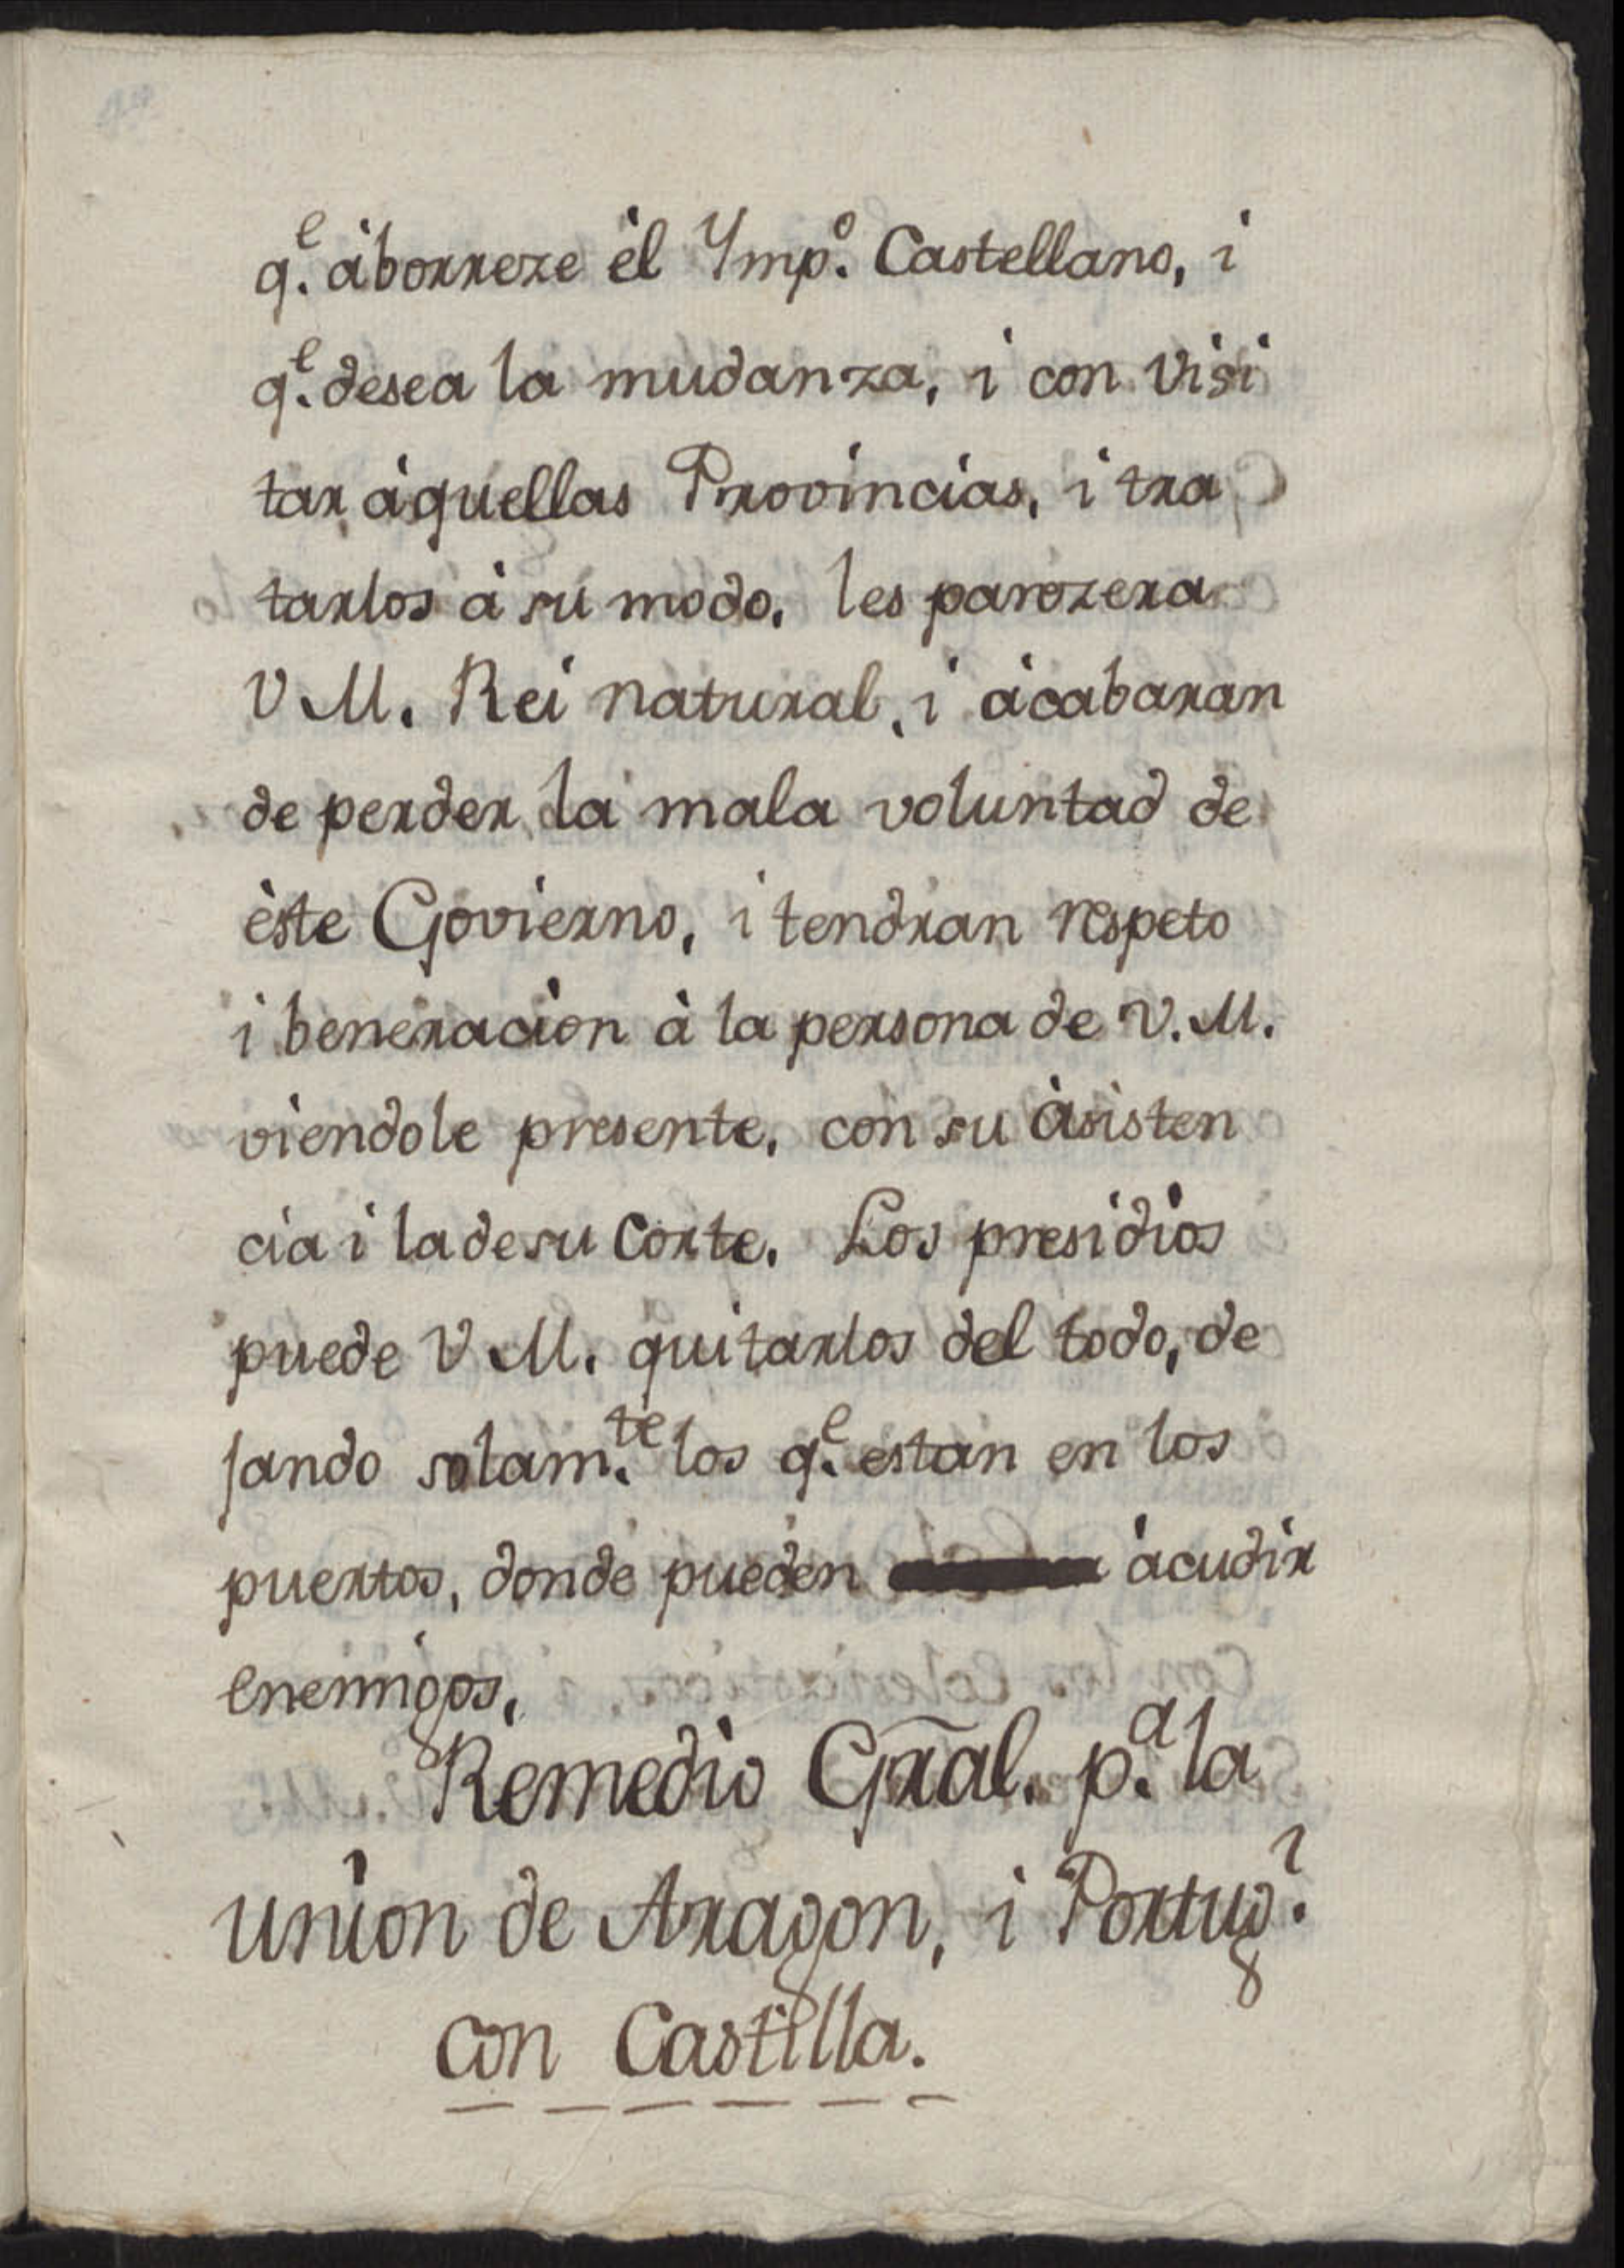 q.e àborreze èl Ymp.o Castellano, i
q.e desea la mudanza, i con visi
tar àquellas Provincias, i tra
tarlos à su modo, les parezera
V M. Rei natural, i àcabaran
de perder la mala voluntad de
èste Govierno, i tendran respeto
i beneracion à la persona de V. M.
viendole presente, con su àsisten
cia i la de su Corte. Los presidios
puede V M. quitarlos del todo, de
jando solam.te los q.e estan en los
puertos, donde pueden àcudir
enemigos,
Remedio Gral. p.a la
union de Aragon, i Portug.l
con Castilla.